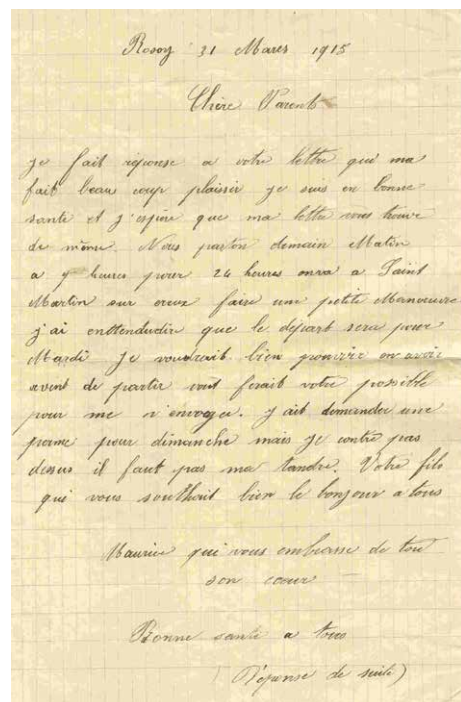 Rosoy 31 Mares 1915
Chère Parents
je fait réponse a votre lettre qui ma
fait beau coup plaisir je suis en bonne
santé et j'espère que ma lettre vous trouve
de même. Nous parton demain Matin
a 7 heures pour 24 heures onva a Saint
Martin sur oreux faire une petite Manoeuvre
j'ai enttendudir que le départ sera pour
Mardi Je voudrait bien pouvoir en avoir
avent de partir vout ferait votre possible
pour me n'envoyer. j'ait demander une
pour dimanche mais je contre pas
desus il faut pas ma tandre. Votre fils
qui vous southait bien le bonjour a tous
Maurice qui vous embrasse de tout
son coeur
Bonne santé a tous
(Réponse de suite)